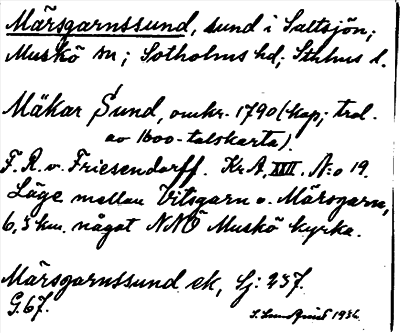 Märsgarnssund, sund i Saltsjön;
Muskö sn; Sotholms hd; Sthlms l.
Mäkar Sund, omkr. 1790 (kop; trol.
av 1600-talskarta).
F. R. v. Friesendorff. Kr A, XXII. N:o 19.
Läge mellan Vitsgarn o. Märsgarn,
6,5 km. något NNÖ Muskö kyrka.
Märsgarnssund ek, Sj: 237.
G. 67.
1936